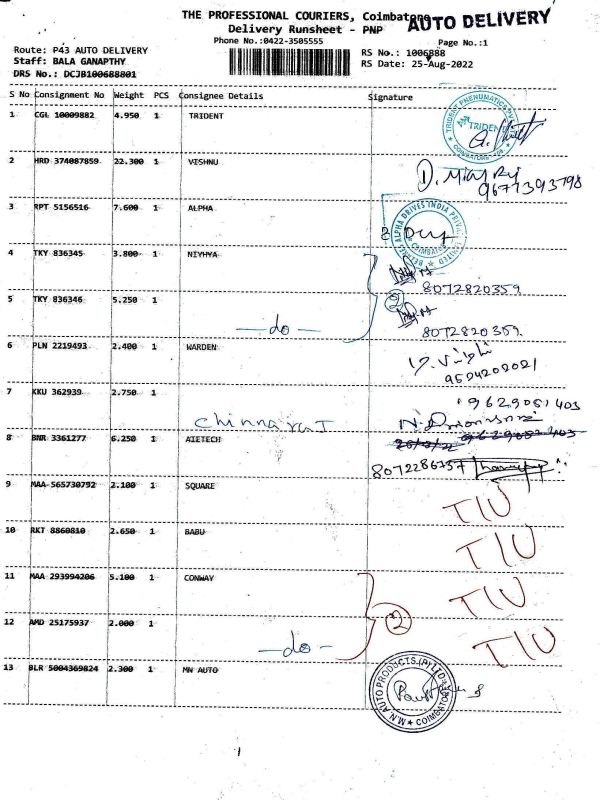 THE PROFESSIONAL COURIERS, Coimbatore
AUTO DELIVERY
Delivery Runsheet - PNP
Phone No.:0422-3505555
Page No.:1
Route: P43 AUTO DELIVERY
RS No.: 1006888
Staff: BALA GANAPTHY
RS Date: 25-Aug-2022
DRS No.: DCJB100688801
S No Consignment No Weight PCS Consignee Details Signature
1 CGL 10009882 4.950 1 TRIDENT
TRIDENT PNEUMATICS PVT LTD
TRIDENT
COIMBATORE
2 HRD 374087859 22.300 1 VISHNU
9677393798
3 RPT 5156516 7.600 1 ALPHA
ALPHA DRIVES INDIA PRIVATE
COIMBATORE
4 TKY 836345 3.800 1 NIYHYA
8072820359
2
5 TKY 836346 5.250 1
-do-
8072820359
6 PLN 2219493 2.400 1 WARDEN
9504202021
7 KKU 362939 2.750 1
9629051403
Chinnaraj
8 BNR 3361277 6.250 1 AIETECH
8072286757
9 MAA 565730792 2.100 1 SQUARE
T/U
10 RKT 8860810 2.650 1 BABU
T/U
11 MAA 293994206 5.100 1 CONWAY
T/U
2
12 AMD 25175937 2.000 1
-do-
T/U
13 BLR 5004369824 2.300 1 MN AUTO
N.M. AUTO PRODUCTS (P) LTD
COIMBATORE
1